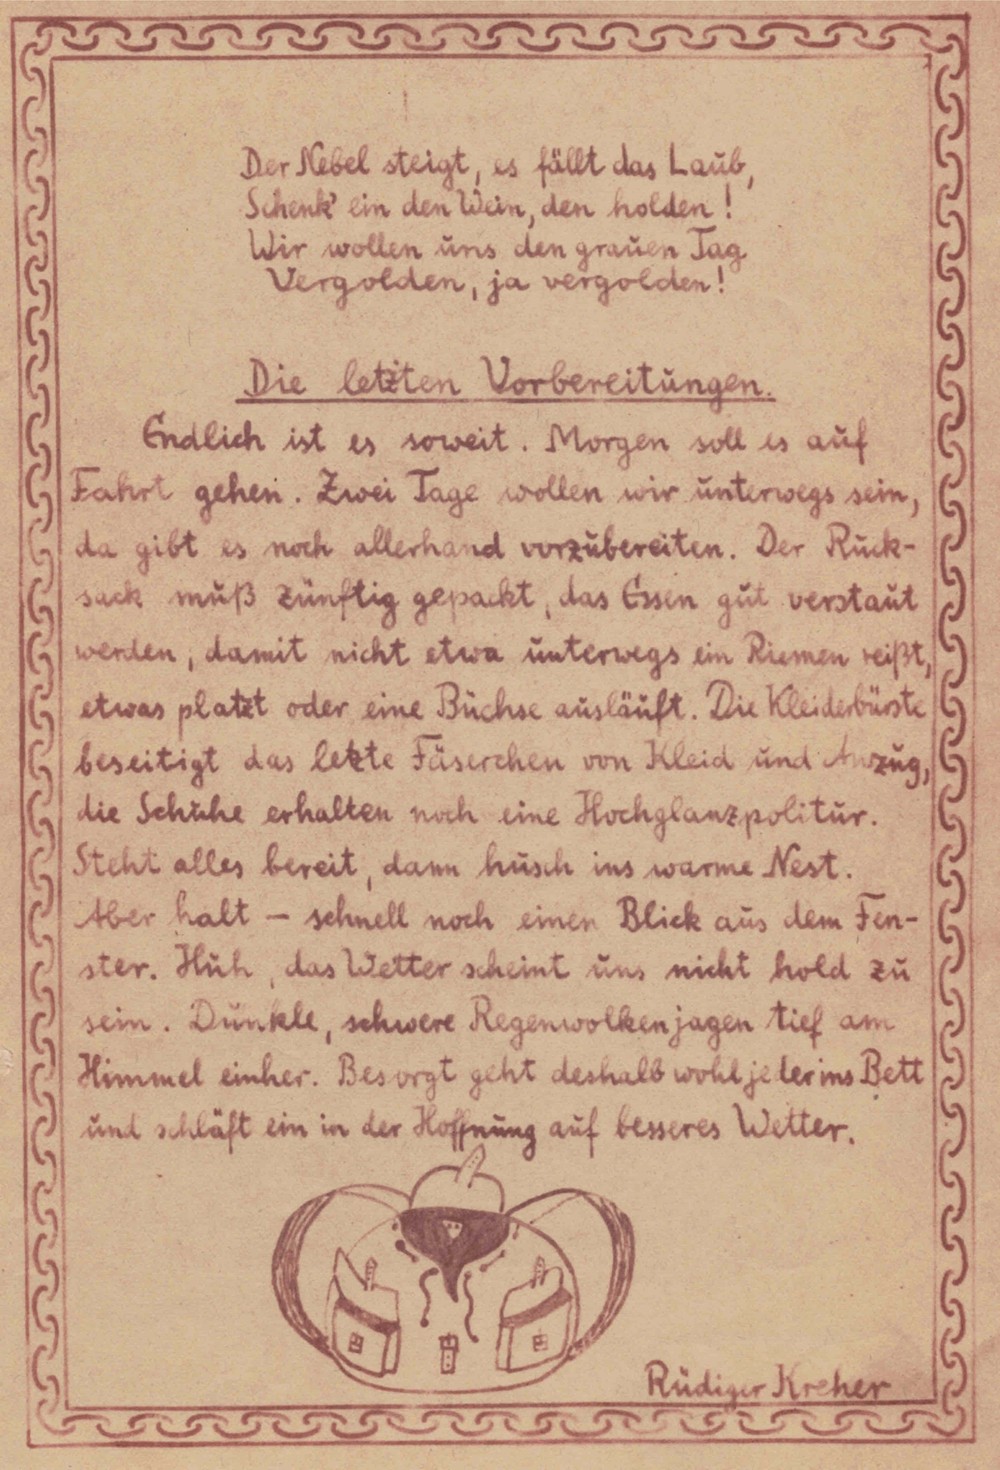 Der Nebel steigt, es fällt das Laub,
Schenk' ein den Wein, den holden!
Wir wollen uns den grauen Tag
Vergolden, ja vergolden!
Die letzten Vorbereitungen.
Endlich ist es soweit. Morgen soll es auf
Fahrt gehen. Zwei Tage wollen wir unterwegs sein,
da gibt es noch allerhand vorzubereiten. Der Ruck-
sack muß zünftig gepackt, das Essen gut verstaut
werden, damit nicht etwa unterwegs ein Riemen reißt,
etwas platzt oder eine Büchse ausläuft. Die Kleiderbürste
beseitigt das letzte Fäserchen von Kleid und Anzug,
die Schuhe erhalten noch eine Hochglanzpolitur.
Steht alles bereit, dann husch ins warme Nest.
Aber halt – schnell noch einen Blick aus dem Fen-
ster. Huh, das Wetter scheint uns nicht hold zu
sein. Dunkle, schwere Regenwolken jagen tief am
Himmel einher. Besorgt geht deshalb wohl jeder ins Bett
und schläft ein in der Hoffnung auf besseres Wetter.
Rüdiger Kreher